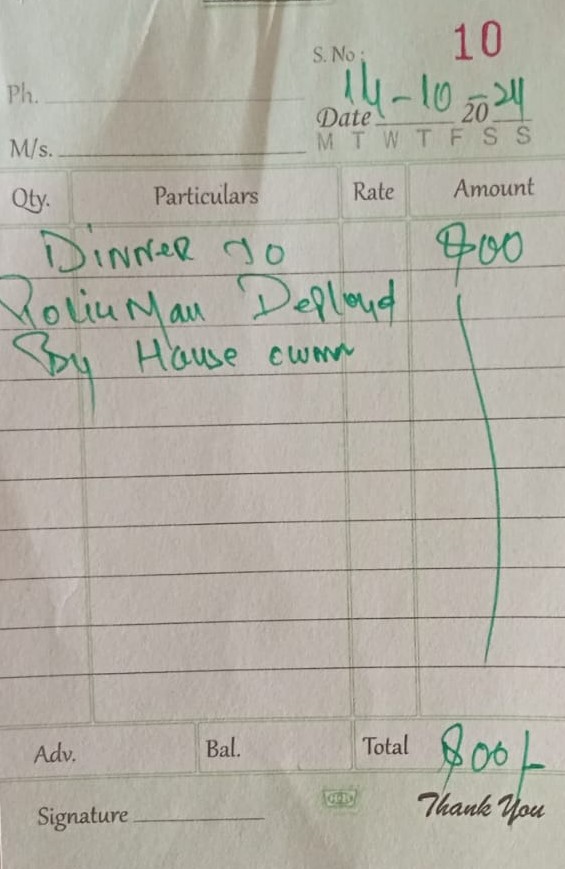 S. No : 10
Ph.
Date 14-10-2024
M/s.
M T W T F S S
Qty. Particulars Rate Amount
Dinner To 800
By House owner
Adv. Bal. Total 800/-
Signature
Thank You